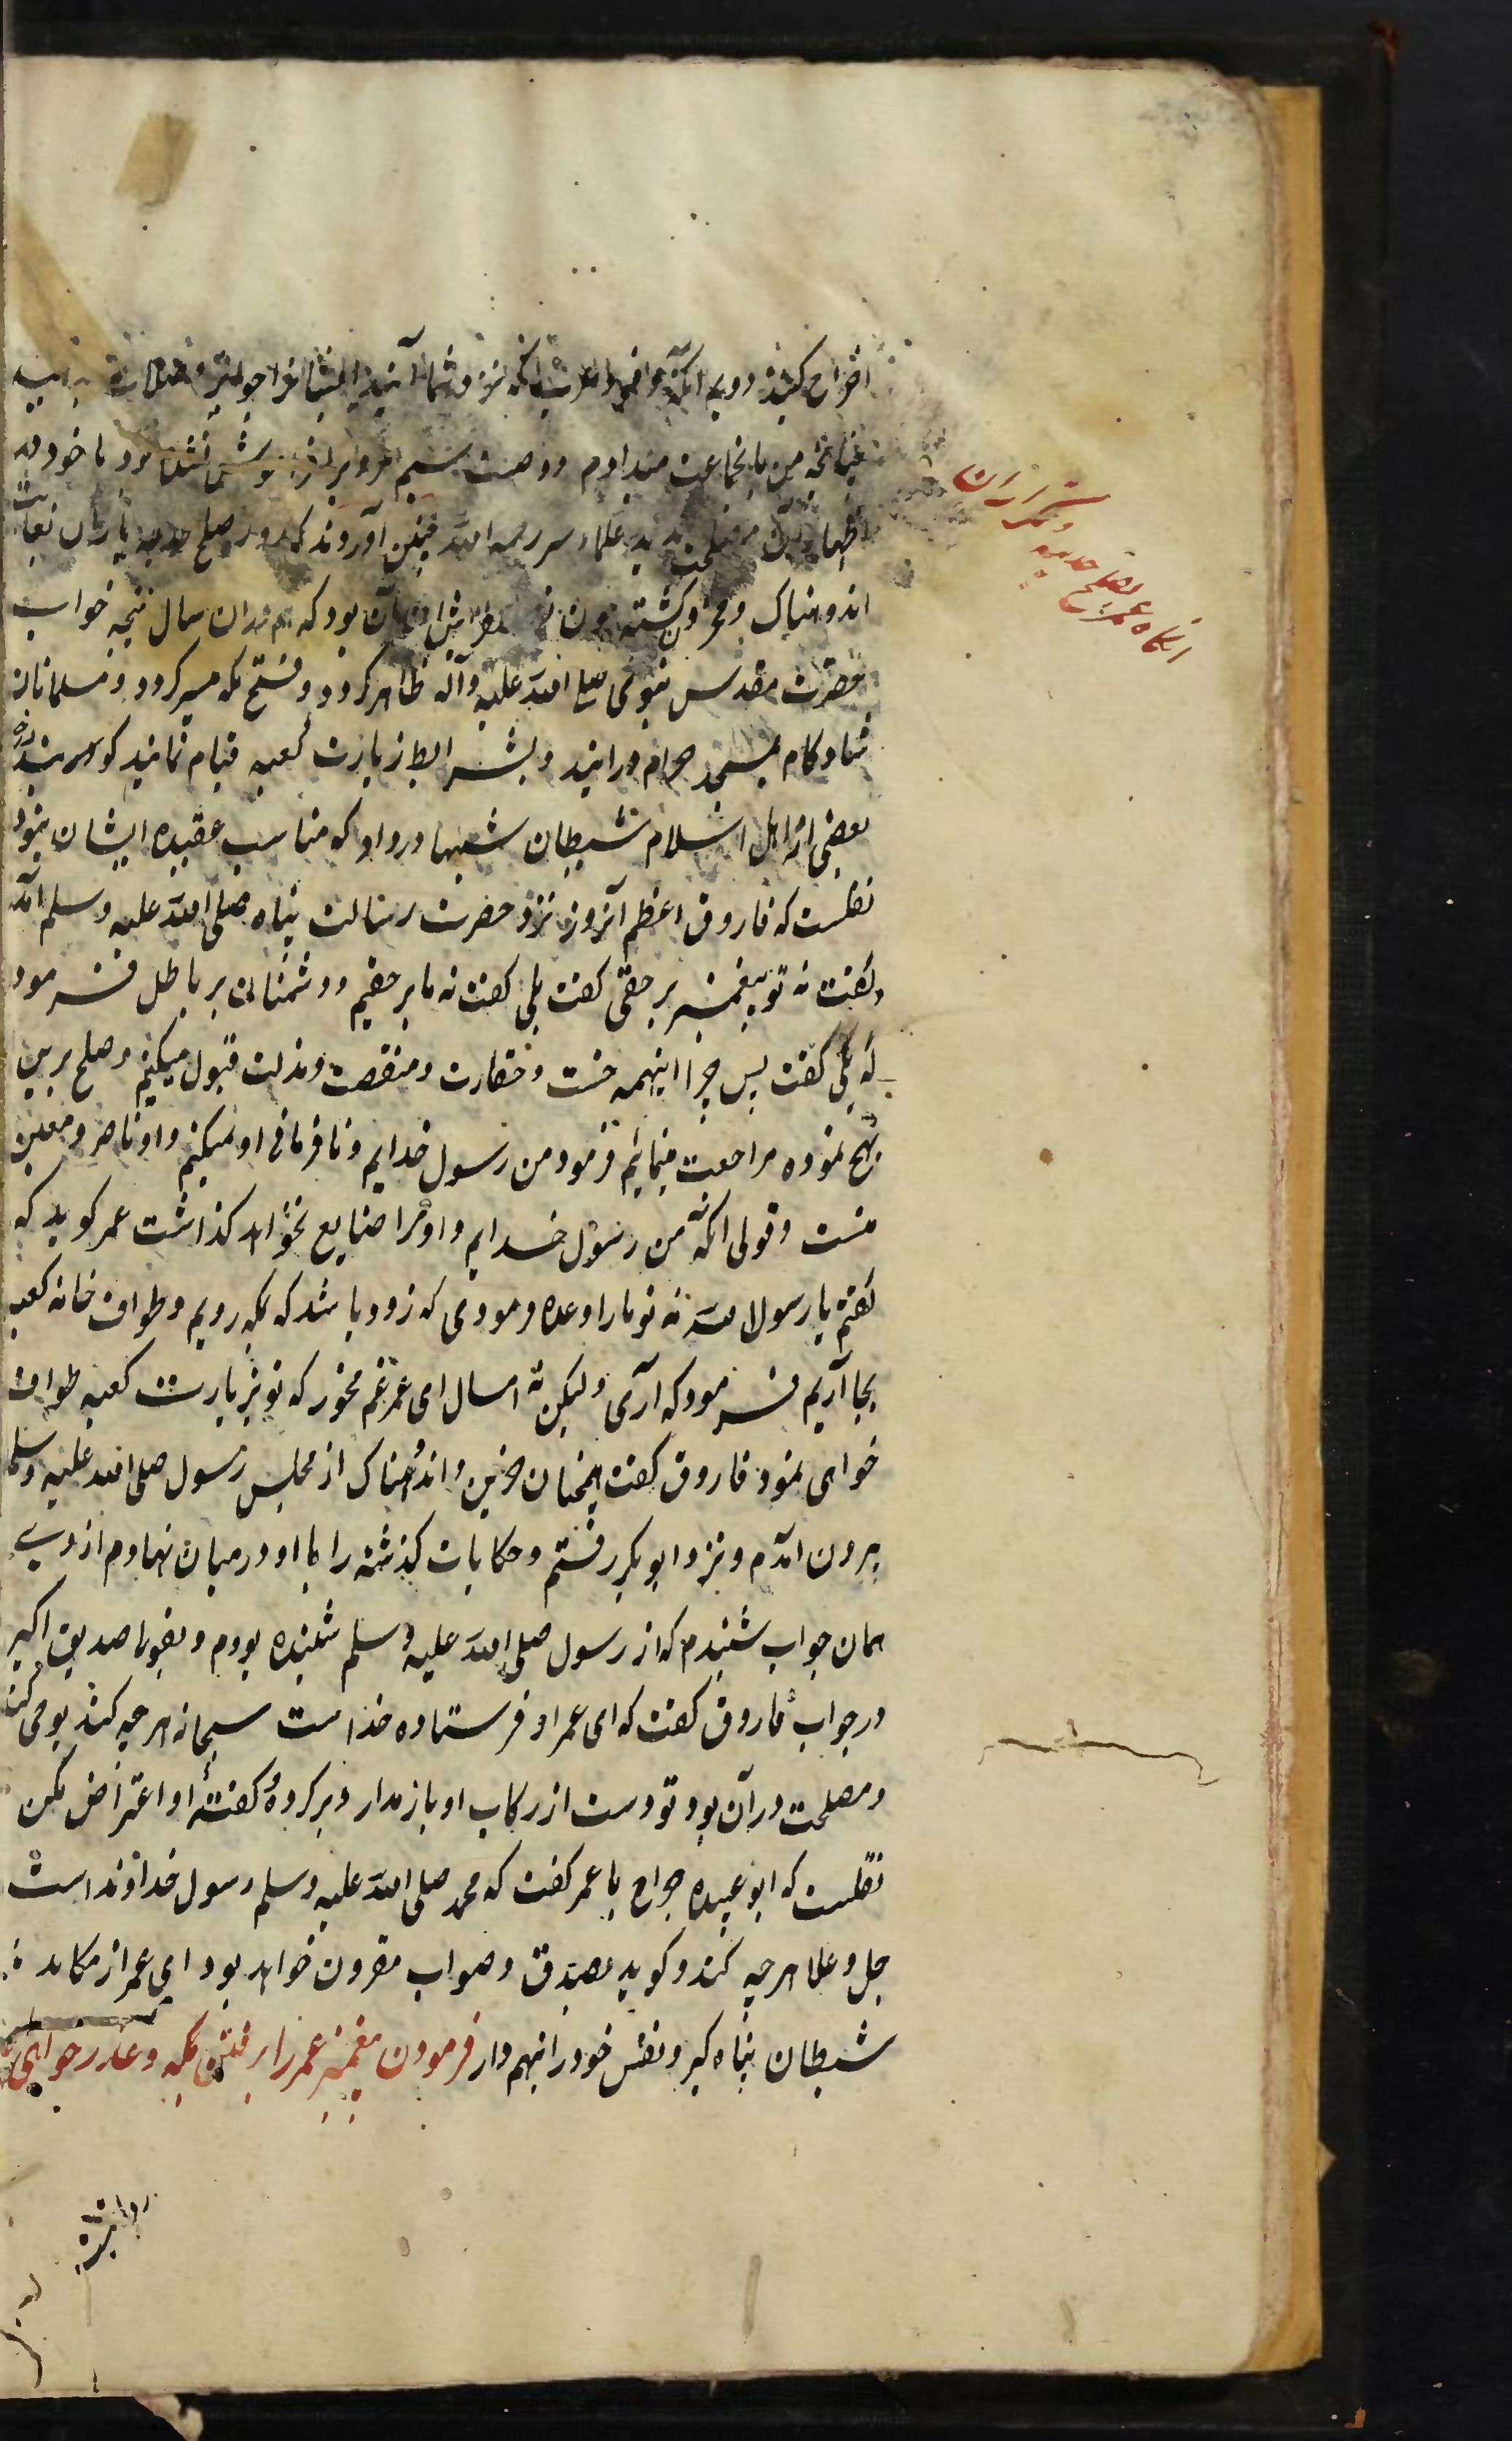 اخراج کنید دویم آنکه وافدان عرب را که نزد شما آیند ایشانرا جوایز و صلات بدهید
چنانچه من بانجماعت میدادم ووصیت سیم فراموش
اظهار آن مصلحت ندید علماء سیر رحمهم الله چنین آورده‌اند که در روز صلح حدیبیه یاران بغایت
اندوهناک ومحزون کشته بودند که هم دران سال نتیجه خواب
حضرت مقدس نبوی صلی الله علیه وآله ظاهر کردد وفتح مکه میسر کردد ومسلمانان
شادکام بمسجد حرام درایند وبشرایط زیارت کعبه قیام نمایند
بعضی از اهل اسلام شیطان شبهها در داد که مناسب عقیده ایشان نبود
نقلست که فاروق اعظم آنروز نزد حضرت رسالت پناه صلی الله علیه وسلم آمد
وکفت نه تو پیغمبر بر حقی کفت بلی کفت نه ما بر حقیم ودشمنان بر باطل فرمود
که بلی کفت پس چرا اینهمه خست وحقارت ومنقصت ومذلت قبول میکنیم وصلح برین
نهج نموده مراجعت مینمائیم فرمود من رسول خدایم ونافرمانی او نمیکنم واو ناصر ومعین
منست وقولی آنکه من رسول خدایم واو مرا ضایع نخواهد کذاشت عمر کوید که
کفتم یا رسول الله نه تو ما را وعده فرمودی که زود باشد که بمکه رویم وطواف خانه کعبه
بجا آریم فرمود که آری ولیکن نه امسال ای عمر غم مخور که تو بزیارت کعبه طواف
خواهی نمود فاروق کفت همچنان حزین واندوهناک از مجلس رسول صلی الله علیه وسلم
بیرون آمدم ونزد ابوبکر رفتم وحکایات کذشته را با او در میان نهادم از وی
همان جواب شنیدم که از رسول صلی الله علیه وسلم شنیده بودم وبقولی صدیق اکبر
در جواب فاروق کفت که ای عمر او فرستاده خداست سبحانه هر چه کند بوحی کند
ومصلحت در آن بود تو دست از رکاب او باز مدار وبر کرده وکفتهٔ او اعتراض مکن
نقلست که ابو عبیده جراح با عمر کفت که محمد صلی الله علیه وسلم رسول خداوند است
جل وعلا هر چه کند وکوید بصدق وصواب مقرون خواهد بود ای عمر از مکاید
شیطان پناه کیر ونفس خود را متهم دار فرمودن پیغمبر عمر را برفتن مکه وعذر خواهی